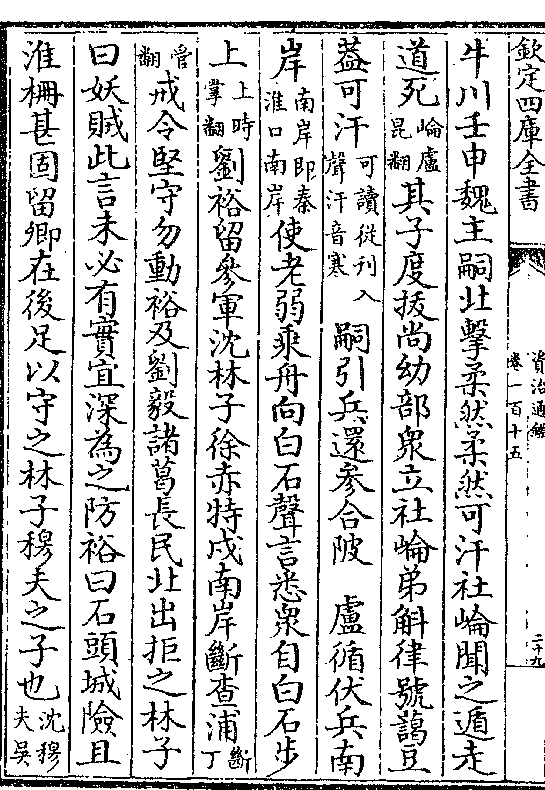 欽定四庫全書
資治通鑑
卷一百十五
二十九
牛川壬申魏主嗣北擊柔然柔然可汗社崘聞之遁走
道死崘盧昆翻其子度拔尚幼部衆立社崘弟斛律號藹豆
葢可汗可讀從刋入聲汗音寒嗣引兵還參合陂　盧循伏兵南
岸南岸即秦淮口南岸使老弱乘舟向白石聲言悉衆自白石步
上上時掌翻劉裕留參軍沈林子徐赤特戍南岸斷查浦斷丁
管翻戒令堅守勿動裕及劉毅諸葛長民北出拒之林子
曰妖賊此言未必有實宜深為之防裕曰石頭城險且
淮柵甚固留卿在後足以守之林子穆夫之子也沈穆夫吳